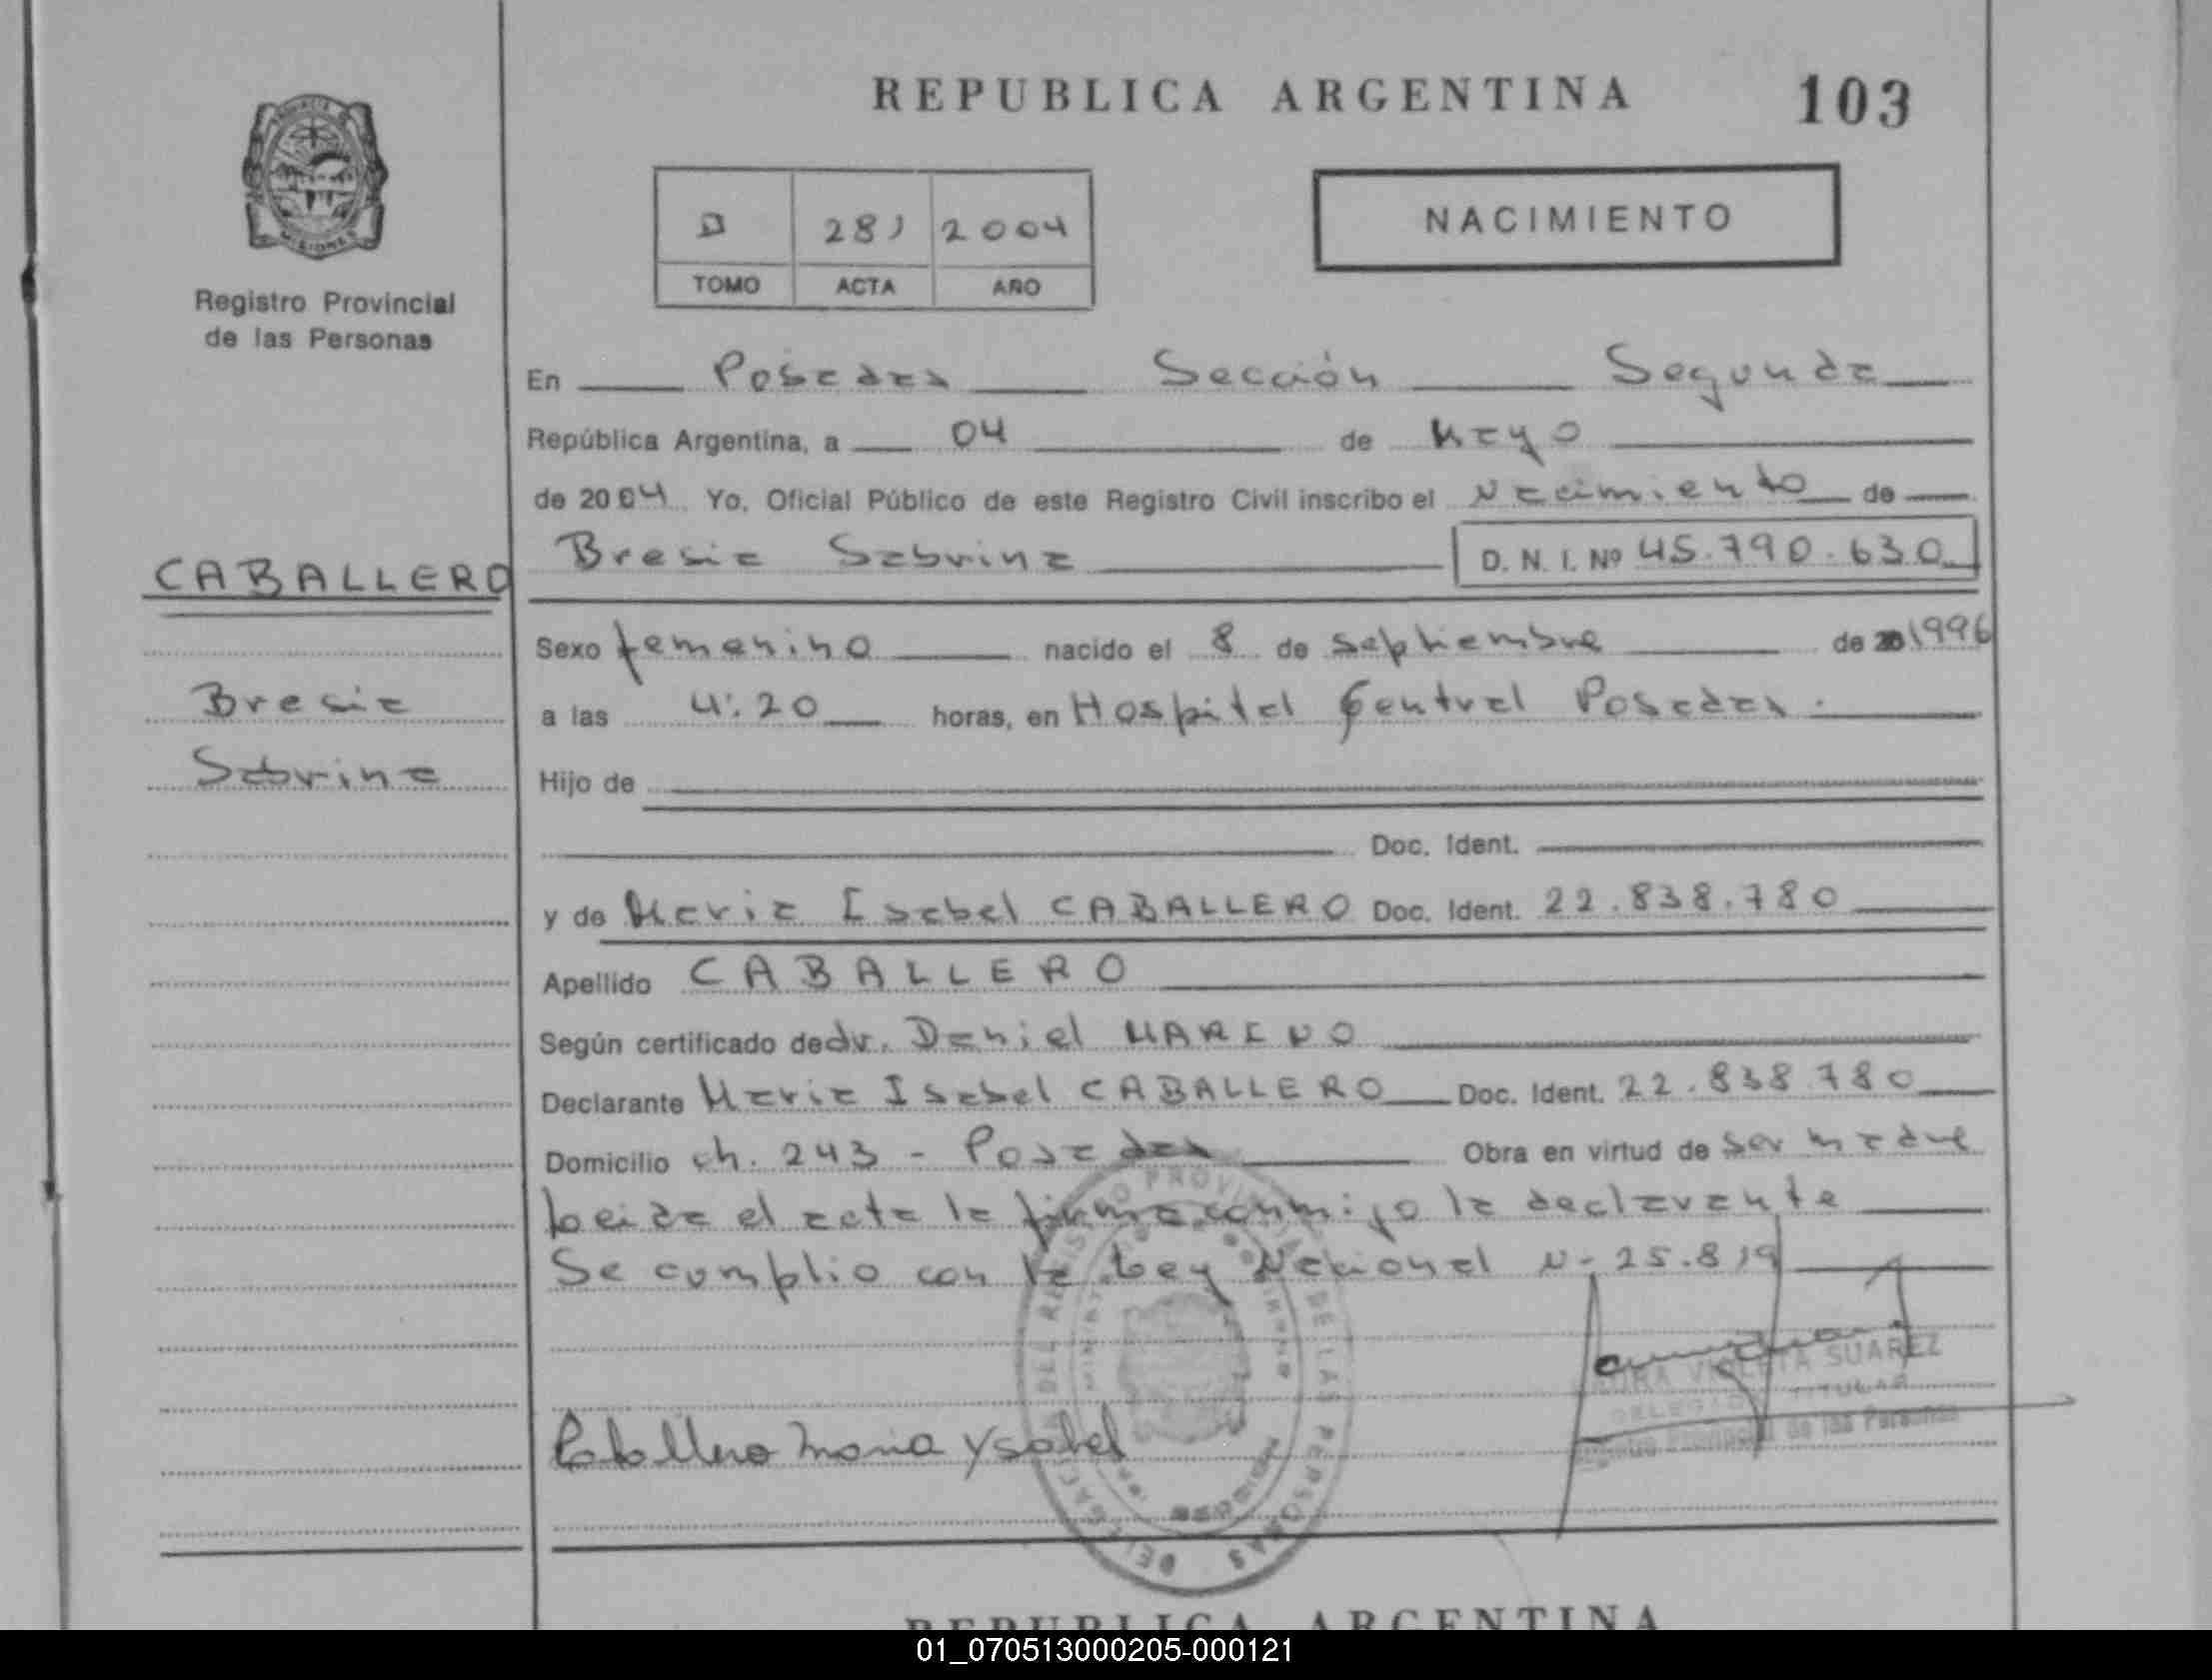 REPUBLICA ARGENTINA 103
PROVINCIA
MISIONES
Registro Provincial
de las Personas
D 281 2004
TOMO ACTA AÑO
NACIMIENTO
En Posadas Sección Segunda
República Argentina, a 04 de Mayo
de 2004 Yo, Oficial Público de este Registro Civil inscribo el Nacimiento de
CABALLERO
Bresia Sabrina D. N. I. Nº 45.790.630
Sexo femenino nacido el 8 de septiembre de 1996
Bresia
a las 4:20 horas, en Hospital Central Posadas.
Sabrina
Hijo de
Doc. Ident.
y de Maria Isabel CABALLERO Doc. Ident. 22.838.780
Apellido CABALLERO
Según certificado de dr. Daniel MARINO
Declarante Maria Isabel CABALLERO Doc. Ident. 22.838.780
Domicilio ch. 243 - Posadas Obra en virtud de ser madre
Leida el acta la firma conmigo la declarante
Se cumplio con la Ley Nacional N- 25.819
VIOLETA SUAREZ
DELEGADA TITULAR
Registro Provincial de las Personas
Caballero Maria Ysabel
DEL REGISTRO PROVINCIAL DE LAS PERSONAS
MISIONES
POSADAS
REPUBLICA ARGENTINA
01_070513000205-000121